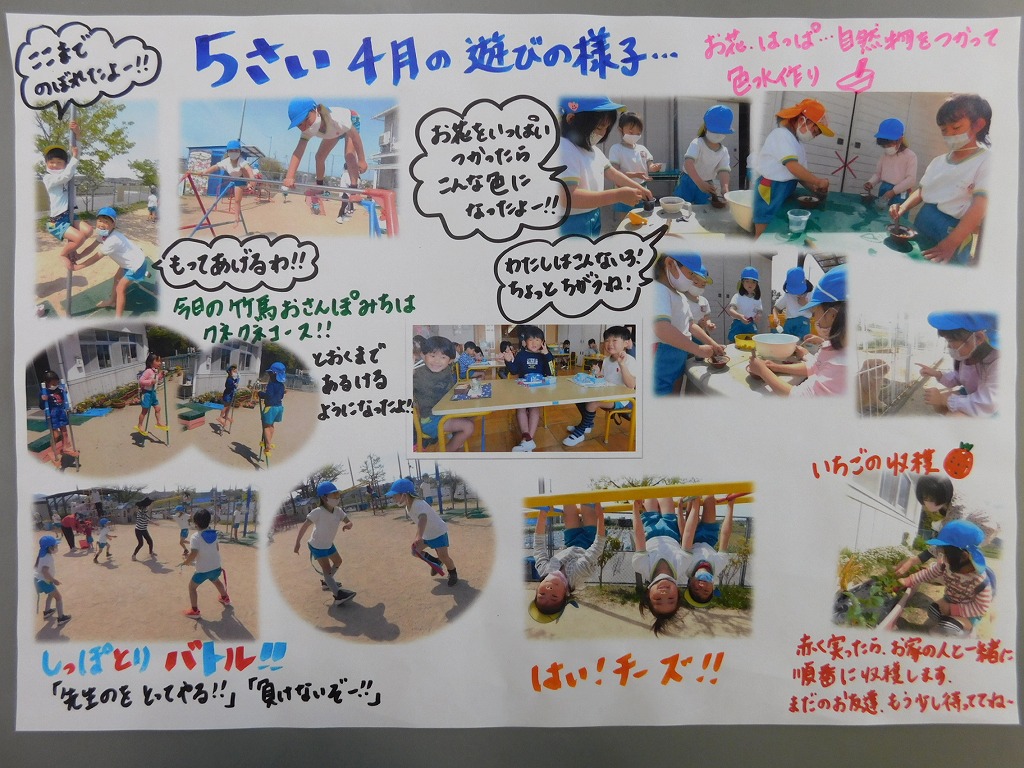 5さい 4月の遊びの様子…
ここまで
のぼれたよー!!
お花.はっぱ…自然物をつかって
色水作り
お花をいっぱい
つかったら
こんな色に
なったよー!!
もってあげるわ!!
わたしはこんないろ!
ちょっとちがうね!
今日の竹馬おさんぽみちは
クネクネコース!!
とおくまで
あるける
ようになったよ!!
いちごの収穫
しっぽとり バトル!!
「先生のを とってやる!!」「負けないぞー!!」
はい!チーズ!!
赤く実ったら、お家の人と一緒に
順番に収穫します.
まだのお友達、もう少し待っててね~